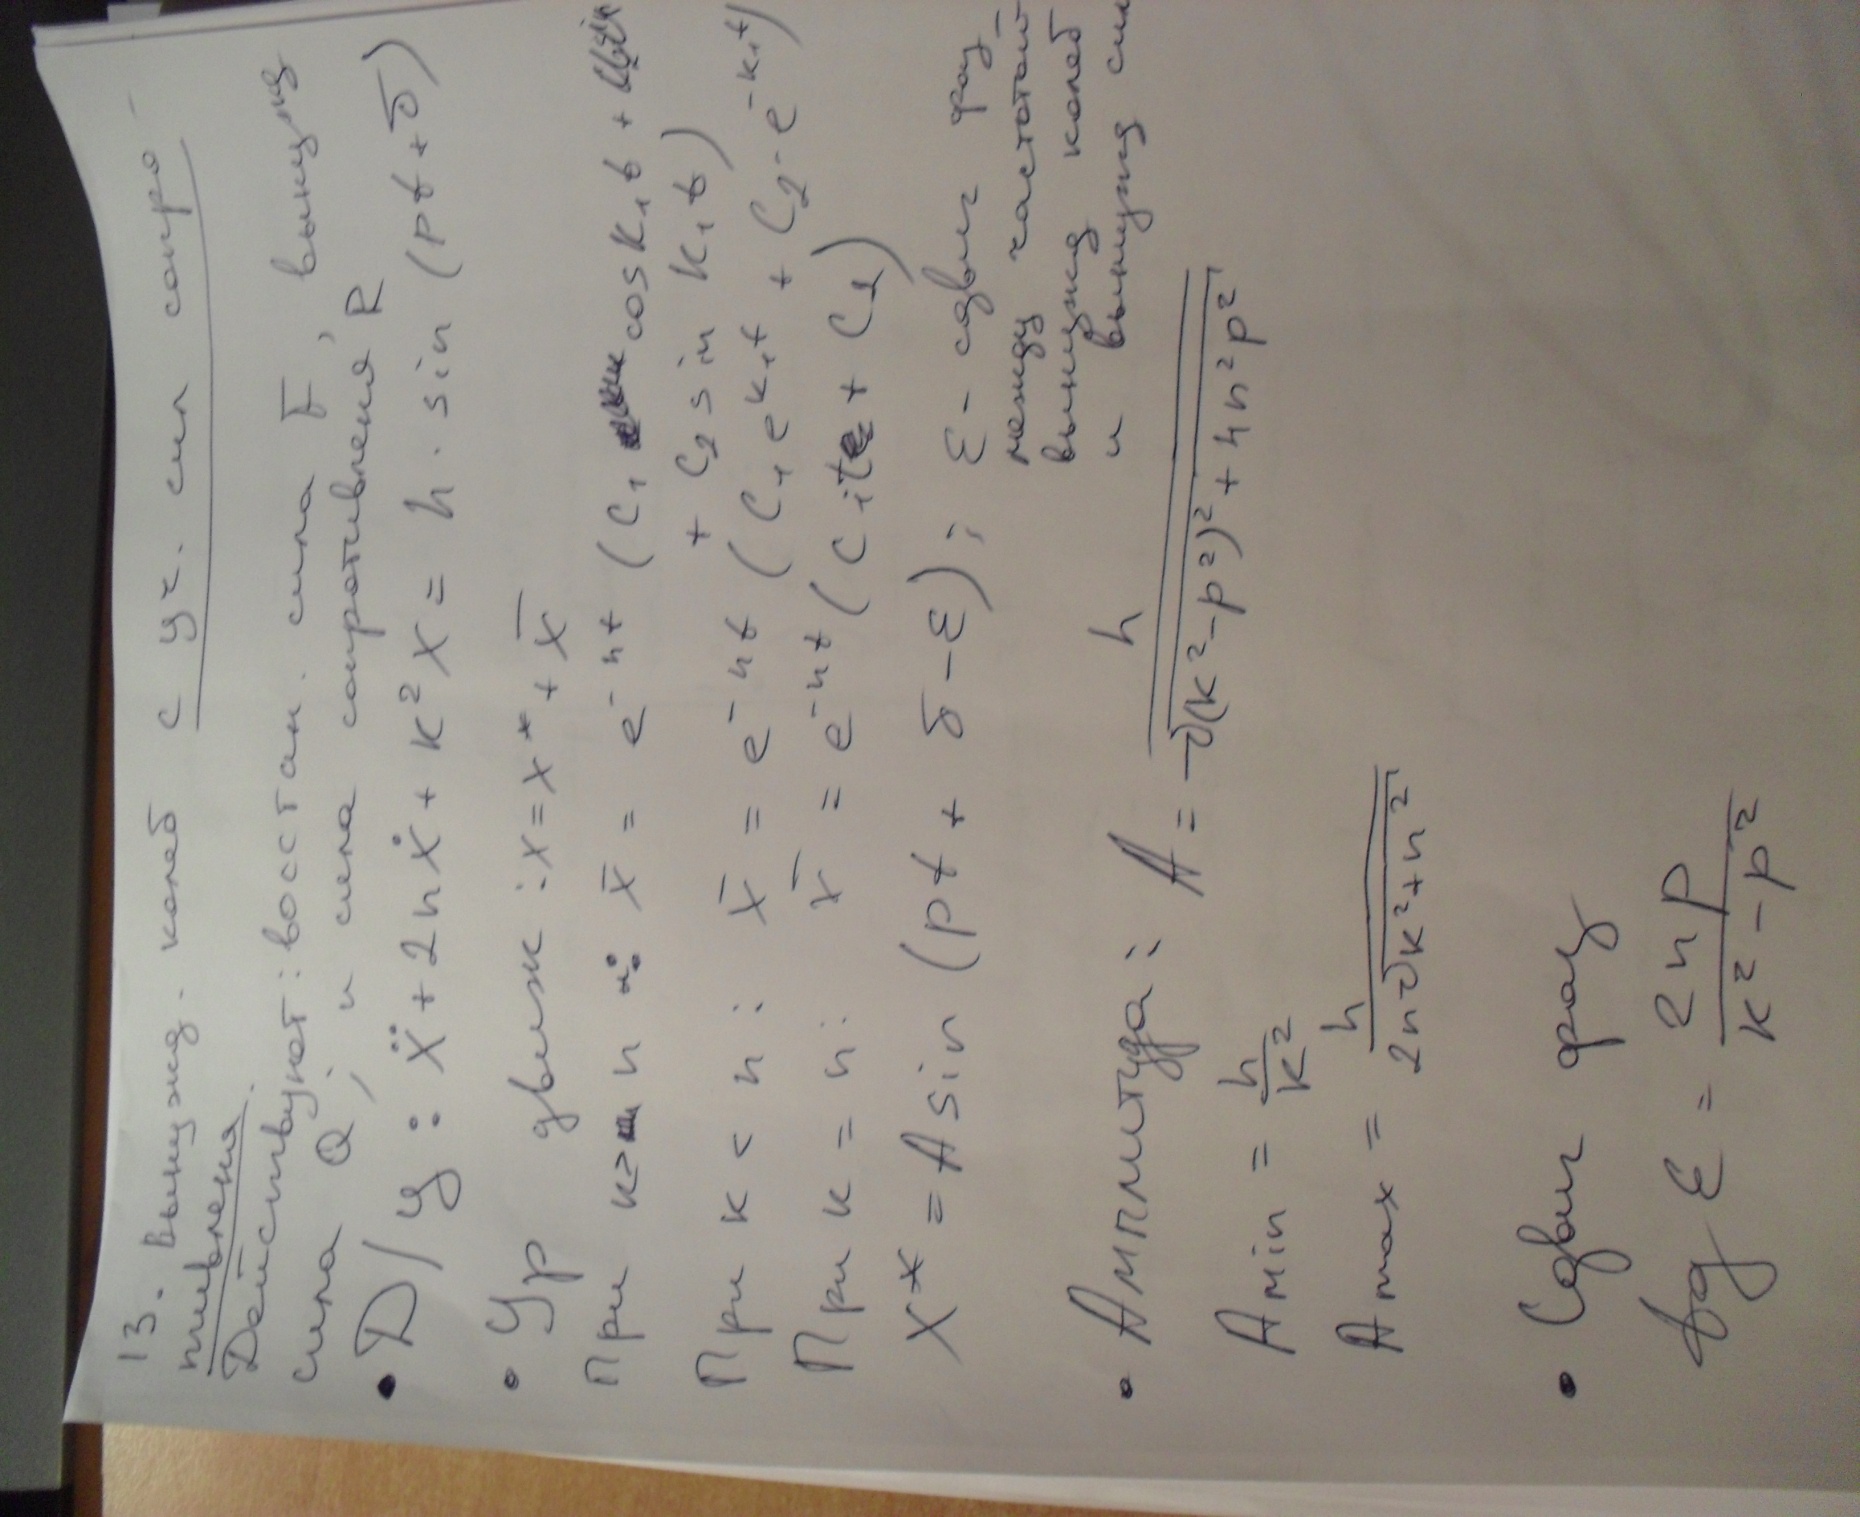 13. Вынужд. колеб с уч. сил сопро-
тивления.
Действуют: восстан. сила F̄, вынужд
сила Q̄, и сила сопротивления R
• D/у: ẍ + 2nẋ + k²x = h · sin (pt + δ)
• Ур движ: x = x* + x̄
При k > n: x̄ = e^-nt (C₁ cos k₁t +
+ C₂ sin k₁t)
При k < n: x̄ = e^-nt (C₁e^k₁t + C₂ - e^-k₁t)
При k = n: x̄ = e^-nt (C₁t + C₂)
x* = A sin (pt + δ - ε); ε - сдвиг фаз
между частотой
вынужд колеб
и вынужд сил
• Амплитуда: A = h / √(k² - p²)² + 4n²p²
A min = h / k²
A max = h / 2n√k² + n²
• Сдвиг фаз
tg ε = 2np / k² - p²